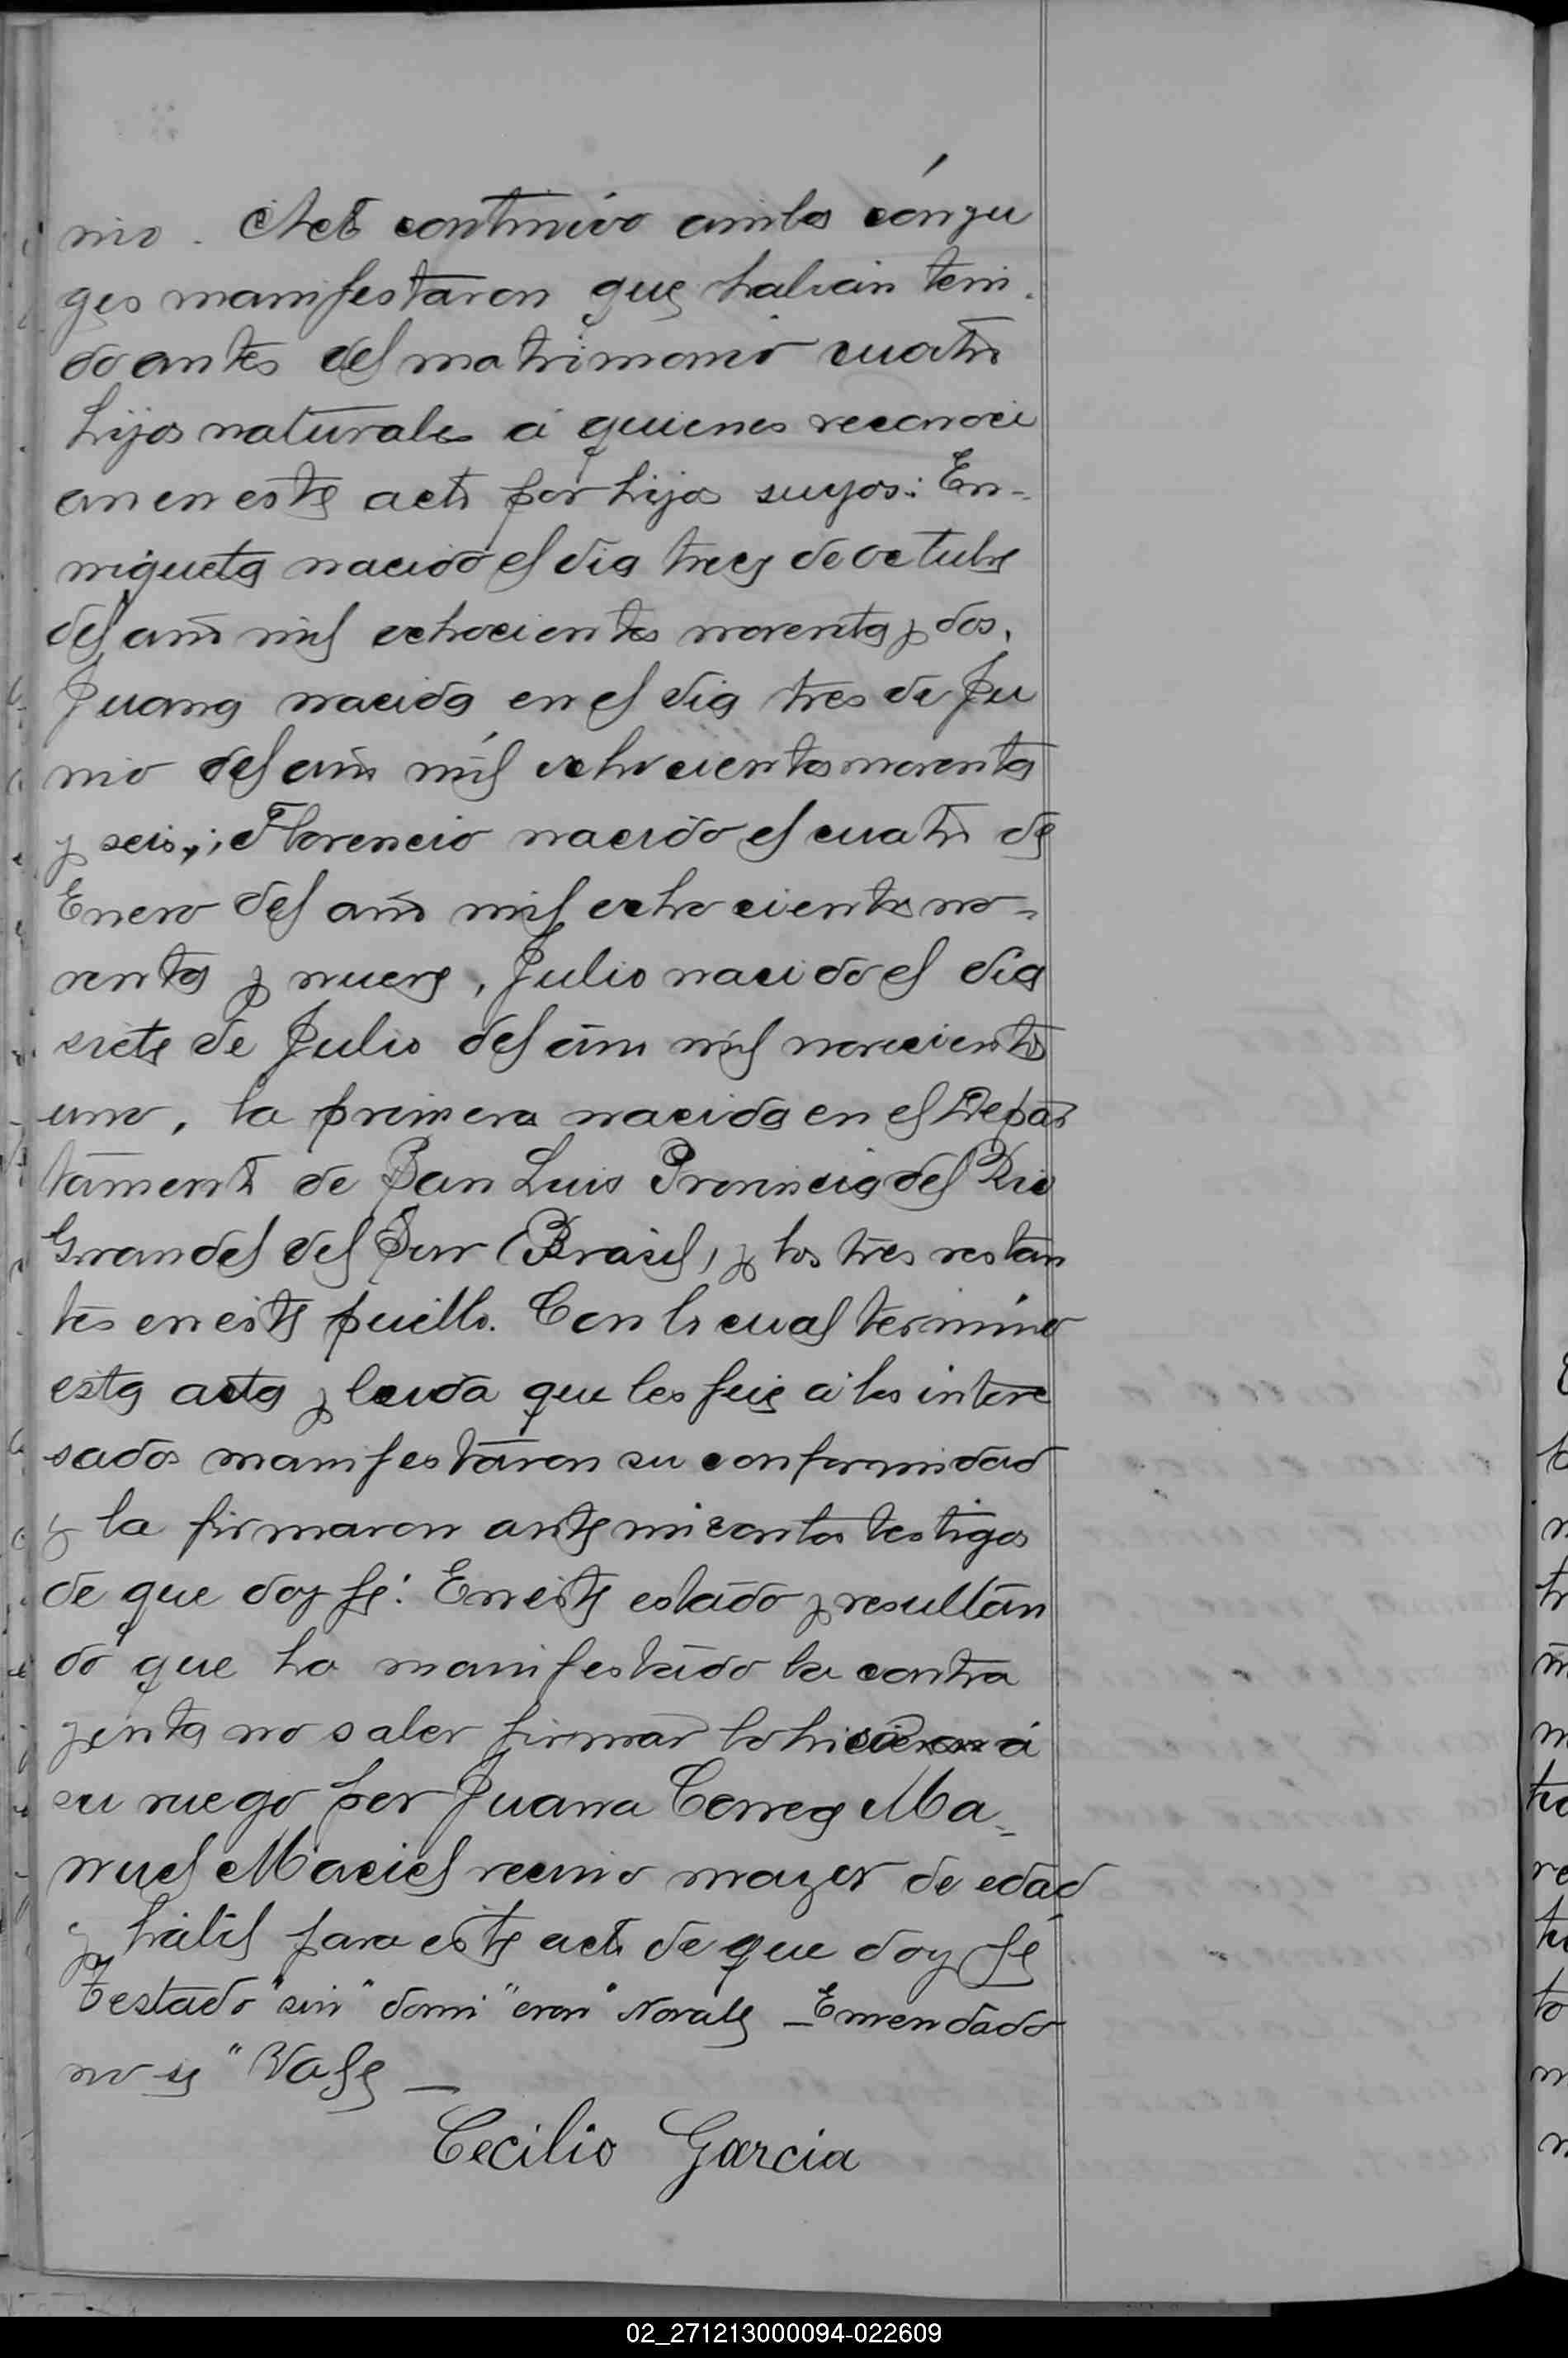 nio. Acto contínuo ambos cónyu
ges manifestaron que habían teni-
do antes del matrimonio cuatro
hijos naturales á quienes reconoci
an en este acto por hijos suyos: En-
riqueta nacido el dia trece de octubre
del año mil ochocientos noventa y dos,
Juana nacida en el dia tres de Ju
nio del año mil ochocientos noventa
y seis,; Florencio nacido el cuatro de
Enero del año mil ochocientos no-
venta y nueve, Julio nacido el día
siete de Julio del año mil novecientos
uno, la primera nacida en el Depar
tamento de San Luis Provincia del Rio
Grandel del Sur (Brasil) y los tres restan
tes en este pueblo. Con lo cual termino
esta acta y leida que les fué á los intere
sados manifestaron su conformidad
y la firmaron ante mi con los testigos
de que doy fé: En este estado y resultan
do que ha manifestado la contra
yenta no saber firmar lo hicieron á
su ruego por Juana Correa Ma-
nuel Maciel vecino mayor de edad
y hábil para este acto de que doy fé
Testado "sin" domi "eron" No vale - Enmendado
no se "Vale —
Cecilio Garcia
02_271213000094-022609